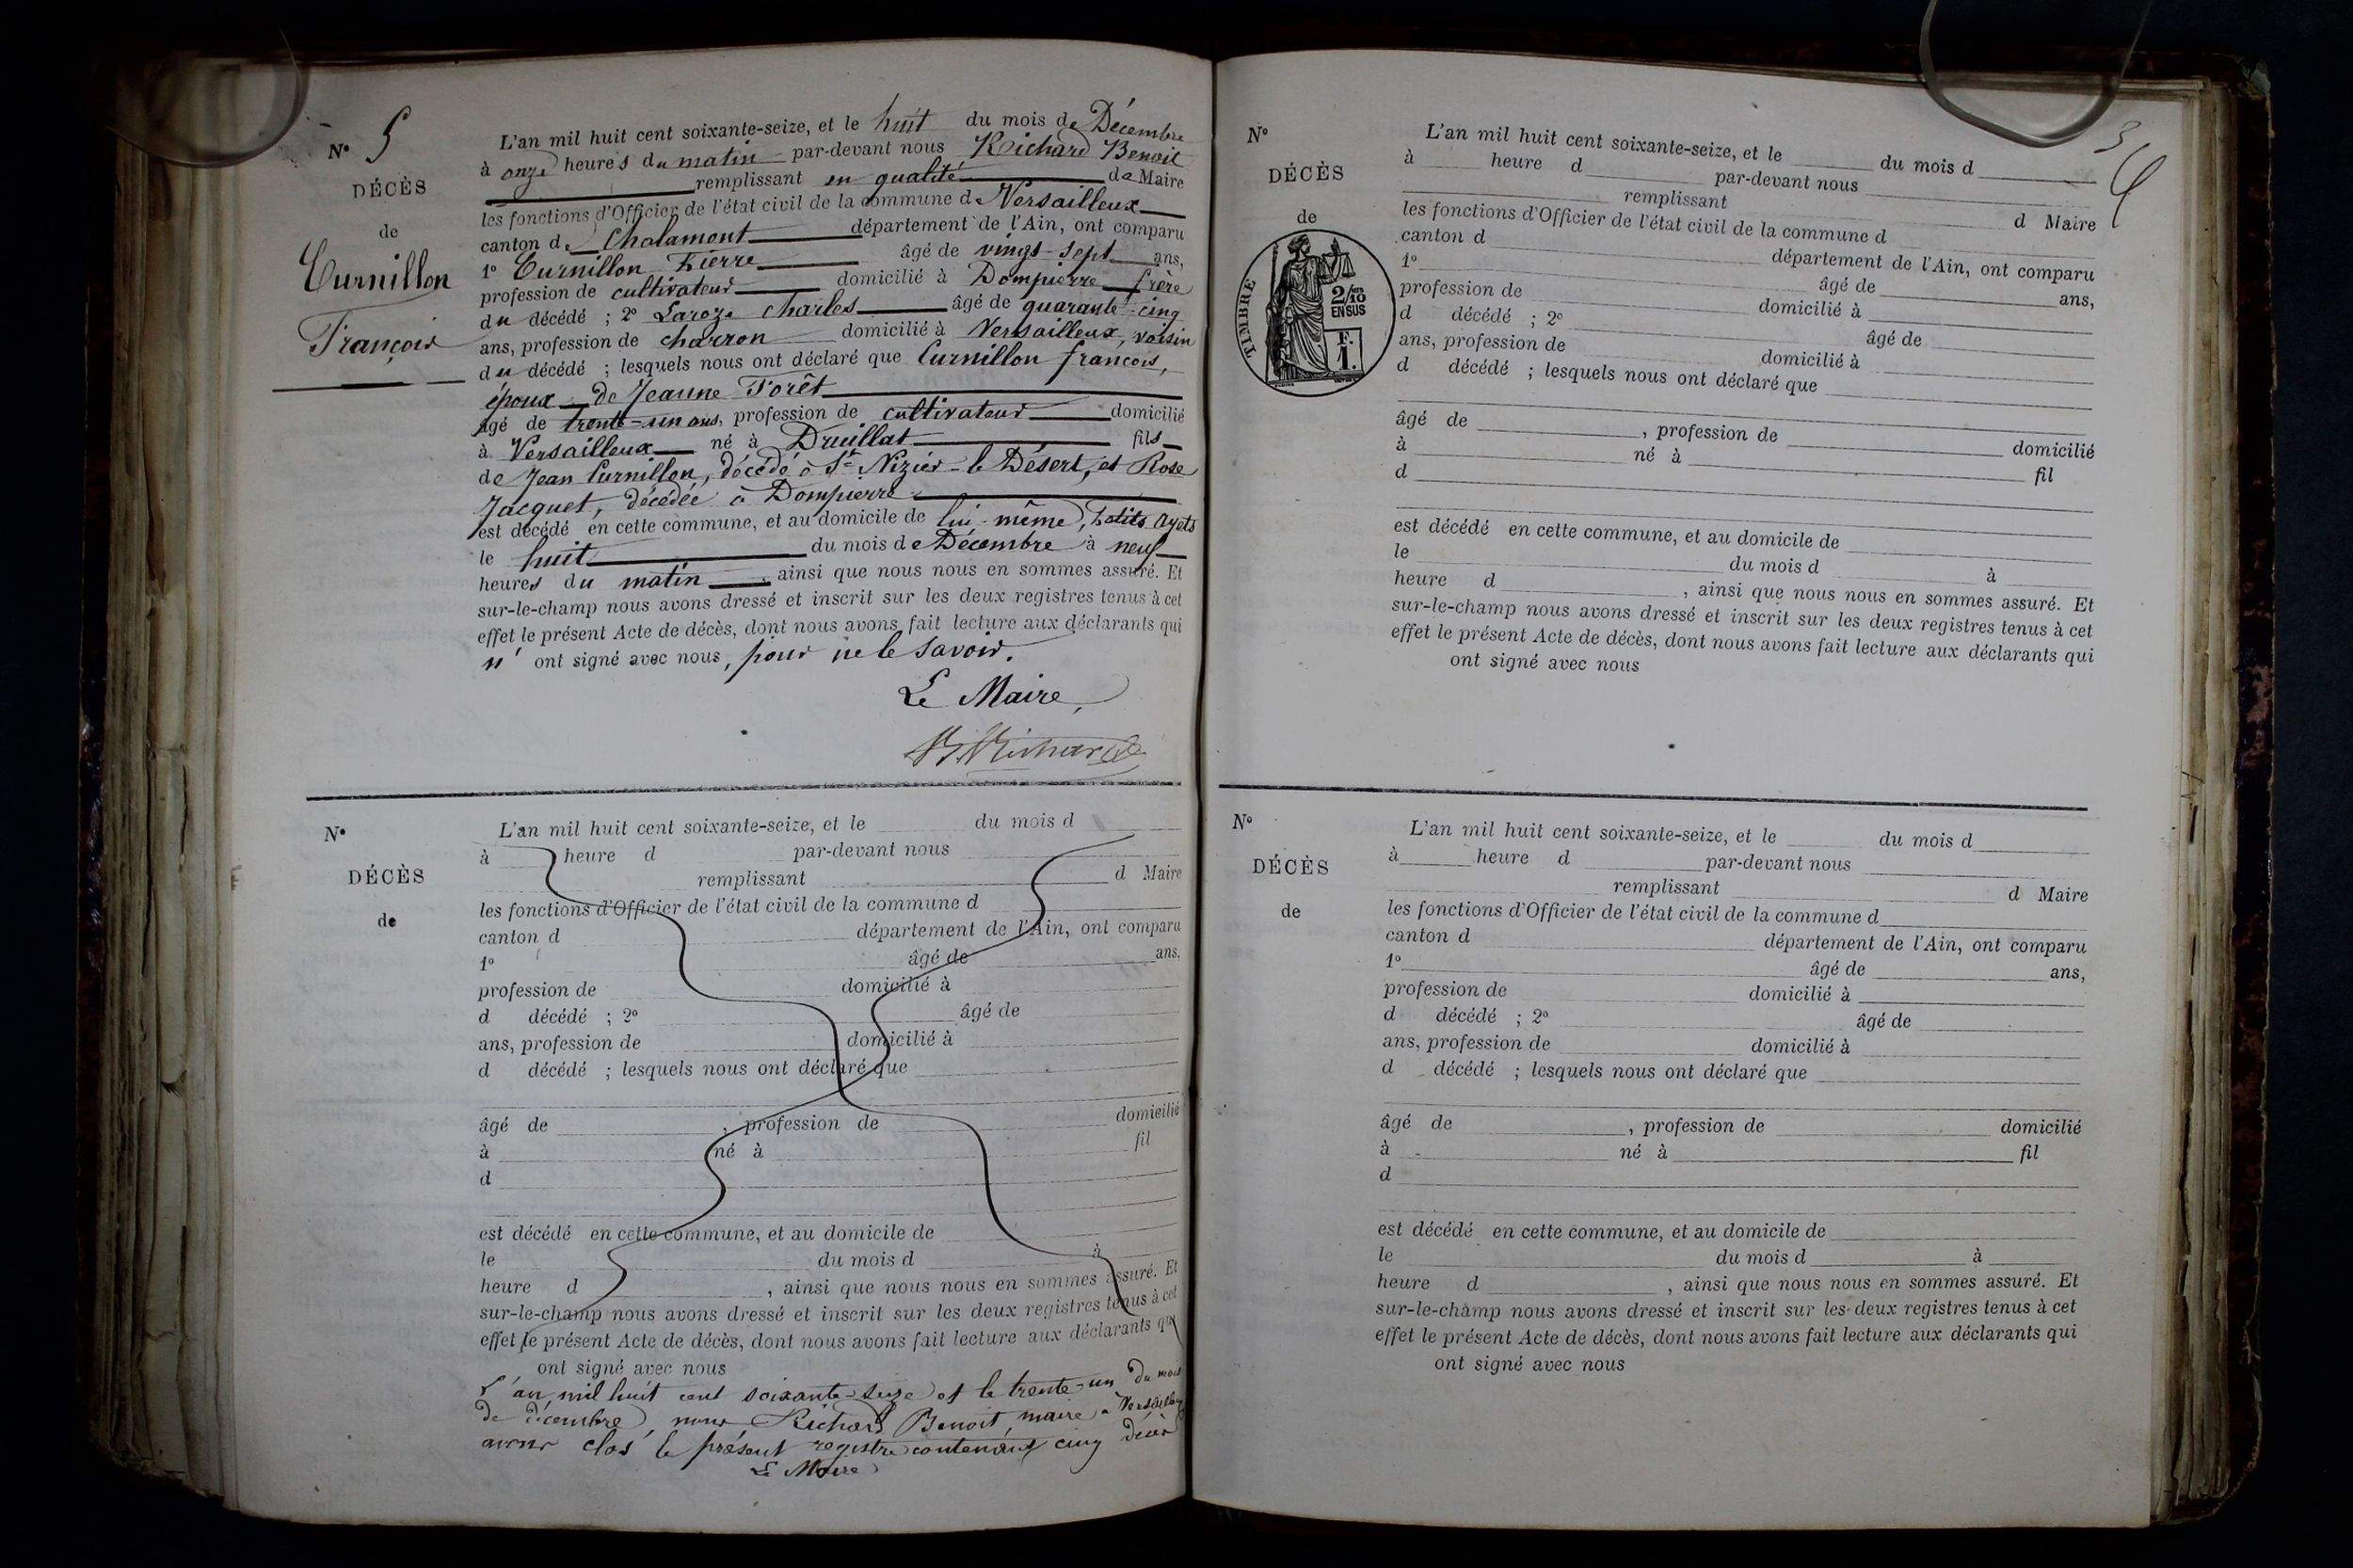 N° 5
DÉCÈS
de
Curnillon
François
L'an mil huit cent soixante-seize, et le huit du mois de Décembre
à onze heures du matin par-devant nous Richard Benoit
remplissant en qualité de Maire
les fonctions d'Officier de l'état civil de la commune de Versailleux
canton de Chalamont département de l'Ain, ont comparu
1° Curnillon Pierre âgé de vingt-sept ans,
profession de cultivateur domicilié à Dompierre frère
du décédé ; 2° Laroze Charles âgé de quarante-cinq
ans, profession de charron domicilié à Versailleux, voisin
du décédé ; lesquels nous ont déclaré que Curnillon françois,
époux de Jeanne Forêt
âgé de trente-un ans, profession de cultivateur domicilié
à Versailleux né à Druillat fils
de Jean Curnillon, décédé à St Nizier-le Désert, et Rose
Jacquet, décédée à Dompierre
est décédé en cette commune, et au domicile de lui-même, Petits Ayets
le huit du mois de Décembre à neuf
heures du matin, ainsi que nous nous en sommes assuré. Et
sur-le-champ nous avons dressé et inscrit sur les deux registres tenus à cet
effet le présent Acte de décès, dont nous avons fait lecture aux déclarants qui
n' ont signé avec nous, pour ne le savoir.
Le Maire,
B Richard
N°
DÉCÈS
de
L'an mil huit cent soixante-seize, et le du mois d
à heure d par-devant nous
remplissant d Maire
les fonctions d'Officier de l'état civil de la commune d
canton d département de l'Ain, ont comparu
1° âgé de ans,
profession de domicilié à
d décédé ; 2° âgé de
ans, profession de domicilié à
d décédé ; lesquels nous ont déclaré que
âgé de , profession de domicilié
à né à fil
d
est décédé en cette commune, et au domicile de
le du mois d à
heure d , ainsi que nous nous en sommes assuré. Et
sur-le-champ nous avons dressé et inscrit sur les deux registres tenus à cet
effet le présent Acte de décès, dont nous avons fait lecture aux déclarants qui
ont signé avec nous
L'an mil huit cent soixante-seize et le trente-un du mois
de décembre, nous Richard Benoit, maire à Versailleux
avons clos le présent registre contenant cinq décès
Le Maire
3
N°
DÉCÈS
de
TIMBRE
2/10 EN SUS
F. 1.
L'an mil huit cent soixante-seize, et le du mois d
à heure d par-devant nous
remplissant d Maire
les fonctions d'Officier de l'état civil de la commune d
canton d département de l'Ain, ont comparu
1° âgé de ans,
profession de domicilié à
d décédé ; 2° âgé de
ans, profession de domicilié à
d décédé ; lesquels nous ont déclaré que
âgé de , profession de domicilié
à né à fil
d
est décédé en cette commune, et au domicile de
le du mois d à
heure d , ainsi que nous nous en sommes assuré. Et
sur-le-champ nous avons dressé et inscrit sur les deux registres tenus à cet
effet le présent Acte de décès, dont nous avons fait lecture aux déclarants qui
ont signé avec nous
N°
DÉCÈS
de
L'an mil huit cent soixante-seize, et le du mois d
à heure d par-devant nous
remplissant d Maire
les fonctions d'Officier de l'état civil de la commune d
canton d département de l'Ain, ont comparu
1° âgé de ans,
profession de domicilié à
d décédé ; 2° âgé de
ans, profession de domicilié à
d décédé ; lesquels nous ont déclaré que
âgé de , profession de domicilié
à né à fil
d
est décédé en cette commune, et au domicile de
le du mois d à
heure d , ainsi que nous nous en sommes assuré. Et
sur-le-champ nous avons dressé et inscrit sur les deux registres tenus à cet
effet le présent Acte de décès, dont nous avons fait lecture aux déclarants qui
ont signé avec nous